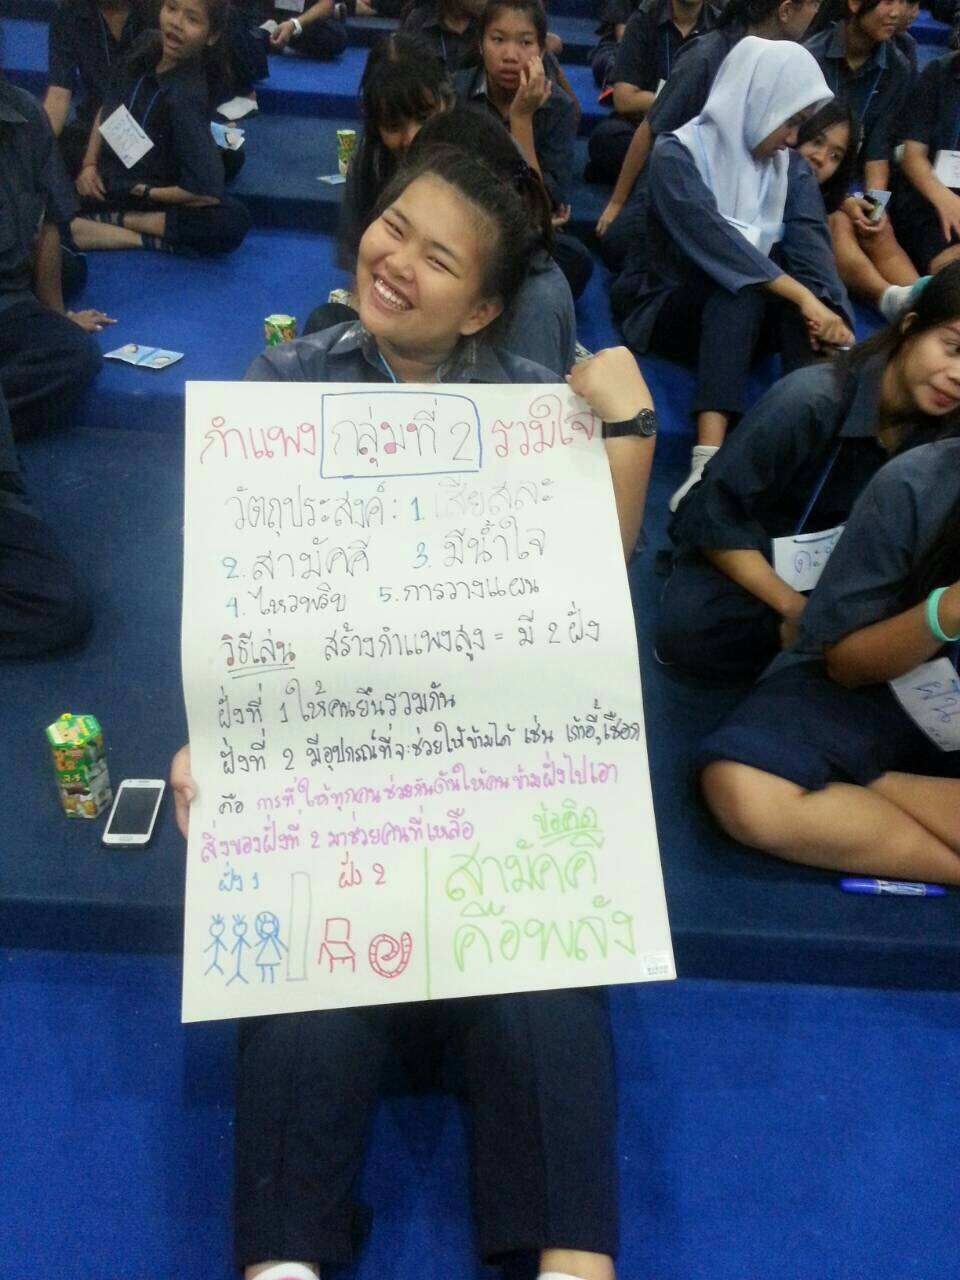 กำแพง กลุ่มที่ 2 รวมใจ
วัตถุประสงค์ : 1. เสียสละ
2. สามัคคี 3. มีน้ำใจ
4. ไหวพริบ 5. การวางแผน
วิธีเล่น สร้างกำแพงสูง = มี 2 ฝั่ง
ฝั่งที่ 1 ให้คนยืนรวมกัน
ฝั่งที่ 2 มีอุปกรณ์ที่จะช่วยให้ข้ามได้ เช่น เก้าอี้, เชือก
คือ การที่ให้ทุกคนช่วยกันดันให้คนข้ามฝั่งไปเอา
สิ่งของฝั่งที่ 2 มาช่วยคนที่เหลือ
ฝั่ง 1 ฝั่ง 2
ข้อคิด
สามัคคี
คือพลัง